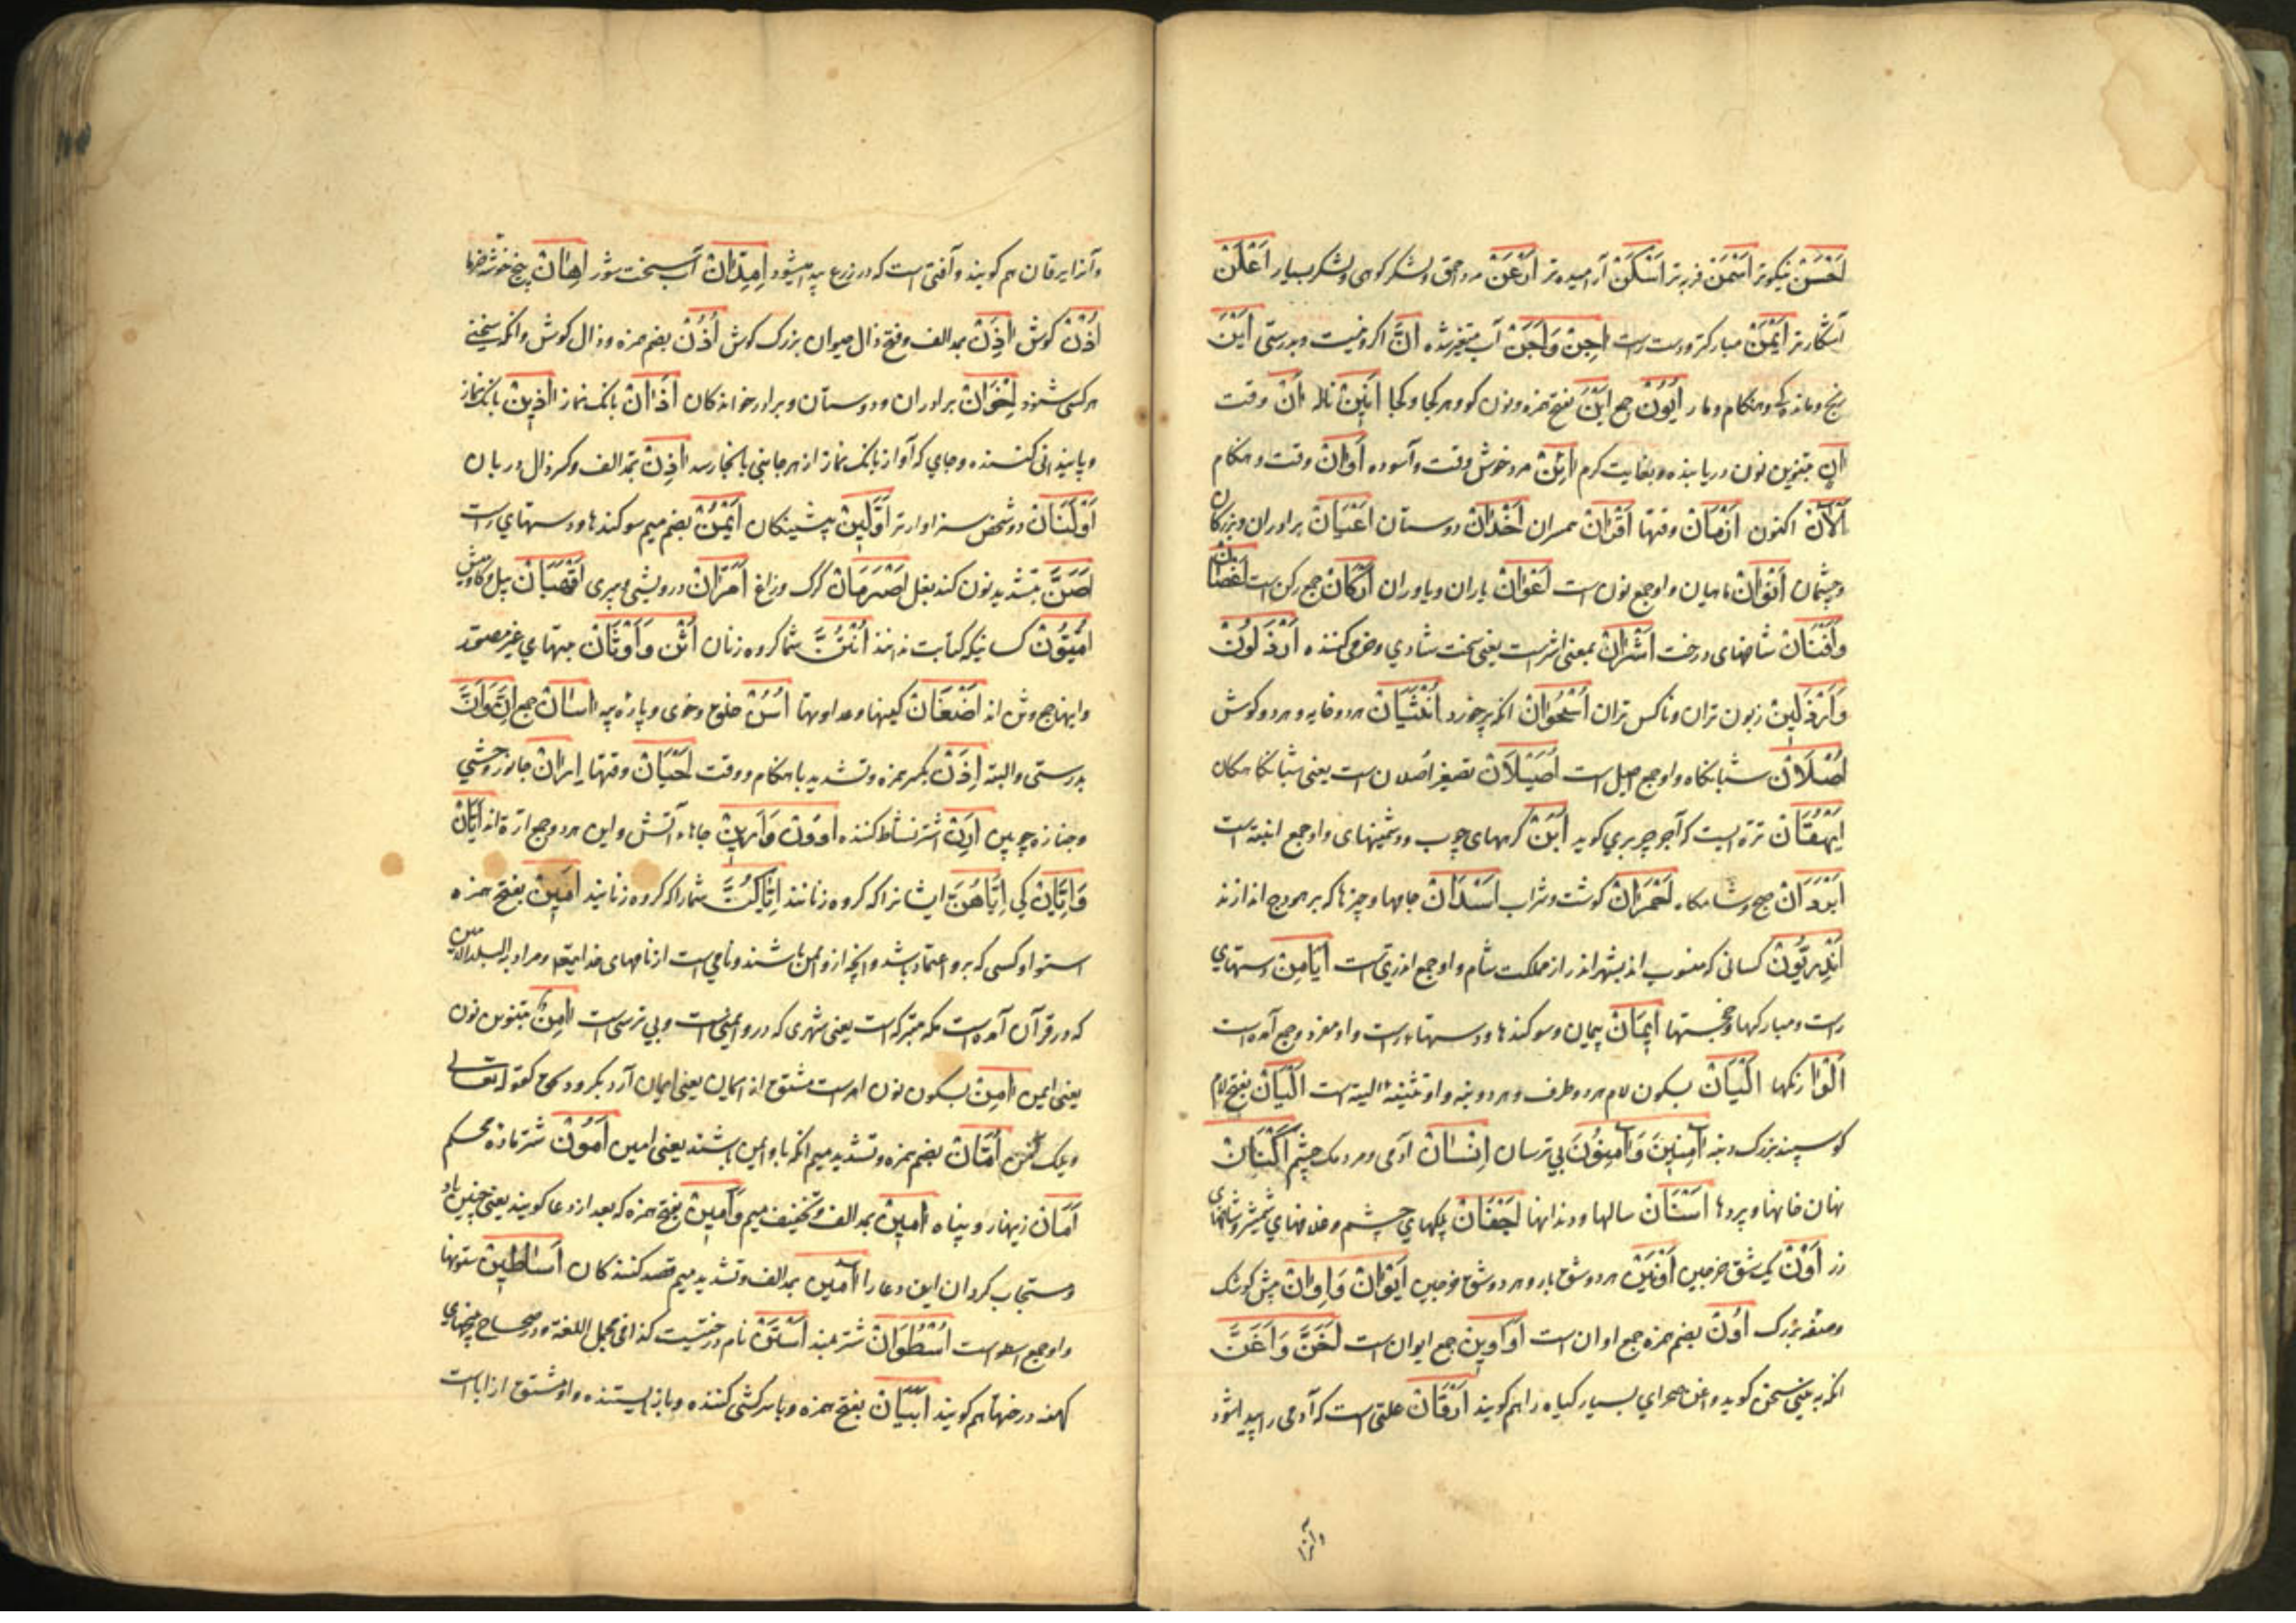 اَحْسَنْ نیکوتر اَسْمَنْ فربه تر اَسْکَنْ آرامیده تر اَرْعَنْ مرد احمق و لشکر کوهی و لشکر بسیار اَعْلَنْ
آشکارتر اَیْمَنْ مبارکتر و دست راست اجِنْ وَاَجَنْ آب متغیر شده اِنَّ اکر و نیست و بدرستی اَیْنَ
رنج و ماندکی و هنکام و مار اُیُونْ جمع اَیْنَ بفتح همزه و نون کو و هر کجا و کجا اَنِینْ ناله اانْ وقت
اانٍ بتنوین نون دریابنده و بغایت کرم اائِنْ مرد خوش وقت و آسوده اَوَانْ وقت و هنکام
اَلْآنْ اکنون اَزْمَانْ وقتها اَقْرَانْ همسران اَخْدَانْ دوستان اَعْیَانْ برادران و بزرکان
و چشمان اَنْوَانْ ماهیان و او جمع نون است اَعْوَانْ یاران و یاوران اَرْکَانْ جمع رکن است اَغْصَانْ
وَاَفْنَانْ شاخهای درخت اَشْرَانْ بمعنی اشر است یعنی سخت شادی و خرمی کننده اَرْذَلُونْ
وَاَرْذَلِینْ زبون تران و ناکس تران اُسْحُوَانْ انکه پر خورد اُنْثَیَانْ هر دو خایه و هر دو کوش
اُصْلَانْ شبانکاه و او جمع اصیل است اُصَیْلَانْ تصغیر اصلان است یعنی شبانکاهکان
اَیْهُقَانْ تره ایست که آنرا جرجیر بری کویند اُبَنْ کرههای چوب و دشمنیهای و او جمع ابنة است
اَبْرَدَانْ صبح و شامکاه اَحْمَرَانْ کوشت و شراب اَسْدَانْ جامها و چیزها که بر هودج اندازند
اَنْدَرِیُّونْ کسانی که منسوب اند بشهر اندر از مملکت شام و او جمع اندری است اَیَامِنْ دستهای
راست و مبارکها و خجستها اَیْمَانْ پیمان و سوکندها و دستهاء راست و او مفرد و جمع آمده است
اَلْوَانْ رنکها اَلْیَانْ بسکون لام هر دو طرف و هر دو دنبه و او تثنیه الیة است اَلَیَانْ بفتح لام
کوسپند بزرک دنبه اامِنِینَ وَاامِنُونَ بی ترسان اِنْسَانْ آدمی و مردمک چشم اَکْنَانْ
نهان خانها و پردها اَسْنَانْ سالها و دندانها اَجْفَانْ پلکهای چشم و غلافهای شمشیر و شاخهای
رز اَوْنْ یک شق خرجین اَوْنَیْنْ هر دو شق بار و هر دو شق خرجین اِیْوَانْ وَاِوَانْ پیش کوشک
و صفه بزرک اُوُنْ بضم همزه جمع اوان است اَوَاوِینْ جمع ایوان است اَخَنَّ وَاَغَنَّ
انکه به بینی سخن کوید و اغن صحرای بسیار کیاه را هم کویند اَرْقَانْ علتی است که آدمی را پیدا شود
وآنرا
وآنرا یرقان هم کویند و آفتی است که در زرع پیدا میشود اِمِدَّانْ آب سخت شور اِهَانْ بیخ خوشه خرما
اُذْنْ کوش ااذَنْ بمد الف و فتح ذال حیوان بزرک کوش اُذُنْ بضم همزه و ذال کوش و انکه سخن
هر کسی شنود اِخْوَانْ برادران و دوستان و برادر خواندکان اَذَانْ بانک نماز ااذِینْ بانک نماز
و پایندانی کننده و جای که آواز بانک نماز از هر جانبی بآنجا رسد ااذِنْ بمد الف و کسر ذال دربان
اَوْلَیَانْ دو شخص سزاوارتر اَوَّلِینْ پیشینکان اَیْمُنْ بضم میم سوکندها و دستهای راست
اَصَنَّ بتشدید نون کند بغل اَصْرَمَانْ کرک و زاغ اَمَرَّانْ درویشی و پیری اَقْهَبَانْ پیل و کاومیش
اُمِّیُّونْ کسانیکه کتابت ندانند اَنْتُنَّ شما کروه زنان اُثُنْ وَاَوْثَانْ بتهای غیر مصور
و اینها جمع وثن اند اَضْغَانْ کینها و عداوتها اُسُنْ خلق و خوی و پارهٔ پیه ااسَانْ جمع اِنَّ وَاَنَّ
بدرستی و البته اِذَنْ بکسر همزه و تشدید با هنکام و وقت اَحْیَانْ وقتها اِرَانْ جانور وحشی
و جنازه چوبین اَرِنْ اشتر نشاط کننده اِرَوْنَ وَاِرِینْ جاهاء آتش و این هر دو جمع ارة اند اَیَّانْ
وَاِیَّانْ کی اِیَّاهُنَّ ایشانرا که کروه زنانند اِیَّاکُنَّ شما را که کروه زنانید اَمِینْ بفتح همزه
استوار و کسی که برو اعتماد باشد و انچه ازو ایمن باشند و نامی است از نامهای خدایتعالی و مراد به البلد الامین
که در قرآن آمده است مکه متبرکه است یعنی شهری که درو ایمنی است و بی ترسی است اامِنٌ بتنوین نون
یعنی ایمن اامِنْ بسکون نون امر است مشتق از ایمان یعنی ایمان آر و بکرو کقوله تعالی
ویلک آمن اُمَّانْ بضم همزه و تشدید میم انکه باو ایمن باشند یعنی امین اَمُونْ شتر ماده محکم
اَمَانْ زینهار و پناه اامِینْ بمد الف و تخفیف میم وَاَمِینْ بفتح همزه که بعد از دعا کویند یعنی چنین باد
و مستجاب کردان این دعا را اامِّین بمد الف و تشدید میم قصد کنندکان اَسَاطِینْ ستونها
و او جمع اسطوانه است اُسْطُوَانْ شتر بلند اَسْتَنْ نام درختیست کذا فی مجمل اللغة و در صحاح بیخهای
کهنه درختها هم کویند اَبَیَانْ بفتح همزه و با سرکشی کننده و باز ایستنده و او مشتق از ابا است